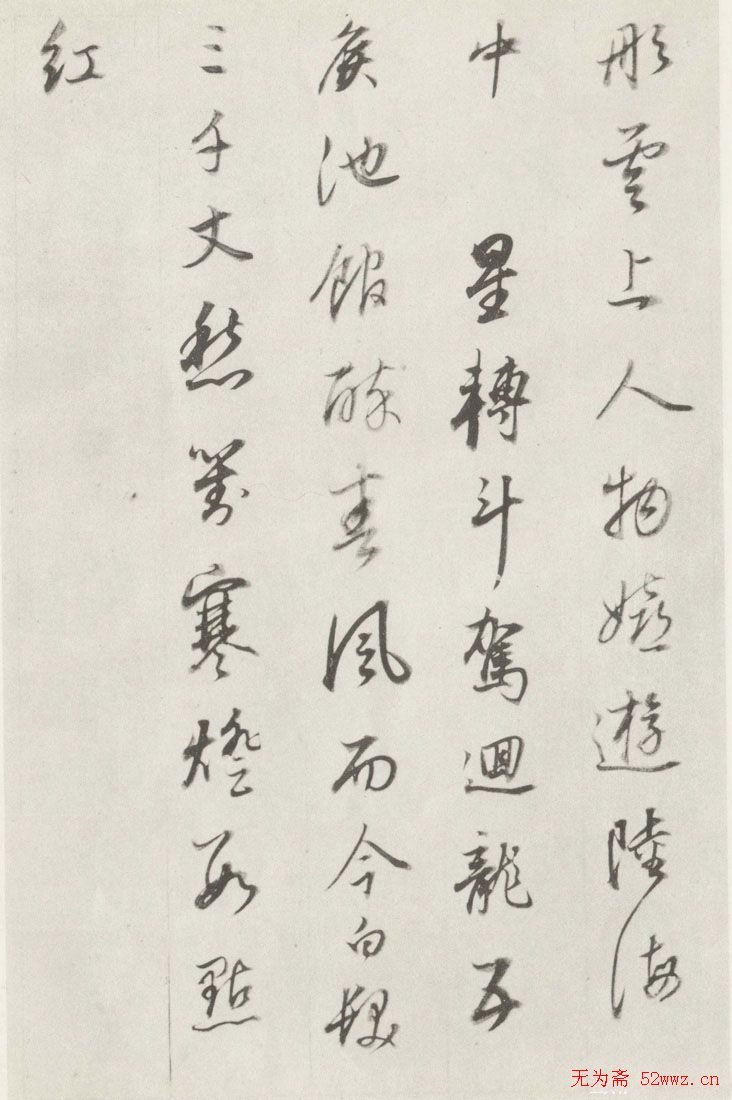 彤雲上人物嬉遊陸海
中 星轉斗駕迴龍五
侯池館醉春風而今白髮
三千丈愁對寒燈數點
紅
无为斋 52wwz.cn